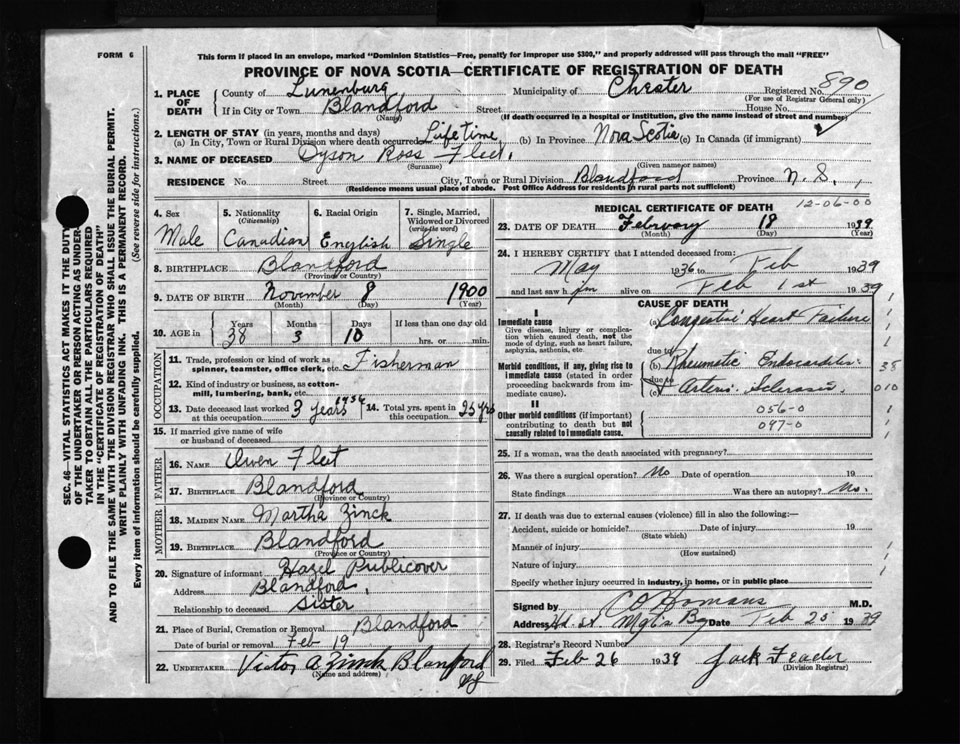 FORM 6
This form if placed in an envelope, marked "Dominion Statistics—Free, penalty for improper use $300," and properly addressed will pass through the mail "FREE"
PROVINCE OF NOVA SCOTIA—CERTIFICATE OF REGISTRATION OF DEATH
890
1. PLACE OF DEATH
County of Lunenburg Municipality of Chester Registered No.
(For use of Registrar General only)
If in City or Town Blandford Street House No.
(Name) (If death occurred in a hospital or institution, give the name instead of street and number)
2. LENGTH OF STAY (in years, months and days)
(a) In City, Town or Rural Division where death occurred Life time (b) In Province Nova Scotia (c) In Canada (if immigrant)
3. NAME OF DECEASED Dyson Ross Fleet.
(Surname) (Given name or names)
RESIDENCE No. Street City, Town or Rural Division Blandford Province N.S.
(Residence means usual place of abode. Post Office Address for residents in rural parts not sufficient)
4. Sex
Male
5. Nationality
(Citizenship)
Canadian
6. Racial Origin
English
7. Single, Married, Widowed or Divorced
(write the word)
Single
8. BIRTHPLACE Blandford
(Province or Country)
9. DATE OF BIRTH November 8 1900
(Month) (Day) (Year)
10. AGE in Years Months Days If less than one day old
38 3 10 hrs. or min.
OCCUPATION
11. Trade, profession or kind of work as spinner, teamster, office clerk, etc. Fisherman
12. Kind of industry or business, as cotton-mill, lumbering, bank, etc.
13. Date deceased last worked at this occupation 3 years 1936
14. Total yrs. spent in this occupation 25 yrs
15. If married give name of wife or husband of deceased
FATHER
16. NAME Owen Fleet
17. BIRTHPLACE Blandford
(Province or Country)
MOTHER
18. MAIDEN NAME Martha Zinck
19. BIRTHPLACE Blandford
(Province or Country)
20. Signature of informant Hazel Publicover
Address Blandford,
Relationship to deceased Sister
21. Place of Burial, Cremation or Removal Blandford
Date of burial or removal Feb 19
22. UNDERTAKER Victor A Zinck Blanford
(Name and address)
NS
MEDICAL CERTIFICATE OF DEATH
12-06-00
23. DATE OF DEATH February 18 1939
(Month) (Day) (Year)
24. I HEREBY CERTIFY that I attended deceased from:
May 1936 to Feb 1939
and last saw him alive on Feb 1st 1939
CAUSE OF DEATH
I
Immediate cause
Give disease, injury or complication which caused death, not the mode of dying, such as heart failure, asphyxia, asthenia, etc.
(a) Congestive Heart Failure
due to
Morbid conditions, if any, giving rise to immediate cause (stated in order proceeding backwards from immediate cause).
(b) Rheumatic Endocarditis 38
due to
(c) Arterio Sclerosis. 010
II
Other morbid conditions (if important) contributing to death but not causally related to immediate cause.
056-0
097-0
25. If a woman, was the death associated with pregnancy?
26. Was there a surgical operation? No Date of operation 19
State findings Was there an autopsy? No
27. If death was due to external causes (violence) fill in also the following:—
Accident, suicide or homicide? Date of injury 19
(State which)
Manner of injury
(How sustained)
Nature of injury
Specify whether injury occurred in industry, in home, or in public place
Signed by C O Homans M.D.
Address Hd. St. Mgts Bay Date Feb 25 1939
28. Registrar's Record Number
29. Filed Feb 26 1939 Jack Feader
(Division Registrar)
SEC. 46—VITAL STATISTICS ACT MAKES IT THE DUTY
OF THE UNDERTAKER OR PERSON ACTING AS UNDERTAKER
TO OBTAIN ALL THE PARTICULARS REQUIRED
IN THE "CERTIFICATE OF REGISTRATION OF DEATH"
AND TO FILE THE SAME WITH THE DIVISION REGISTRAR WHO SHALL ISSUE THE BURIAL PERMIT.
WRITE PLAINLY WITH UNFADING INK. THIS IS A PERMANENT RECORD.
Every item of information should be carefully supplied. (See reverse side for instructions.)